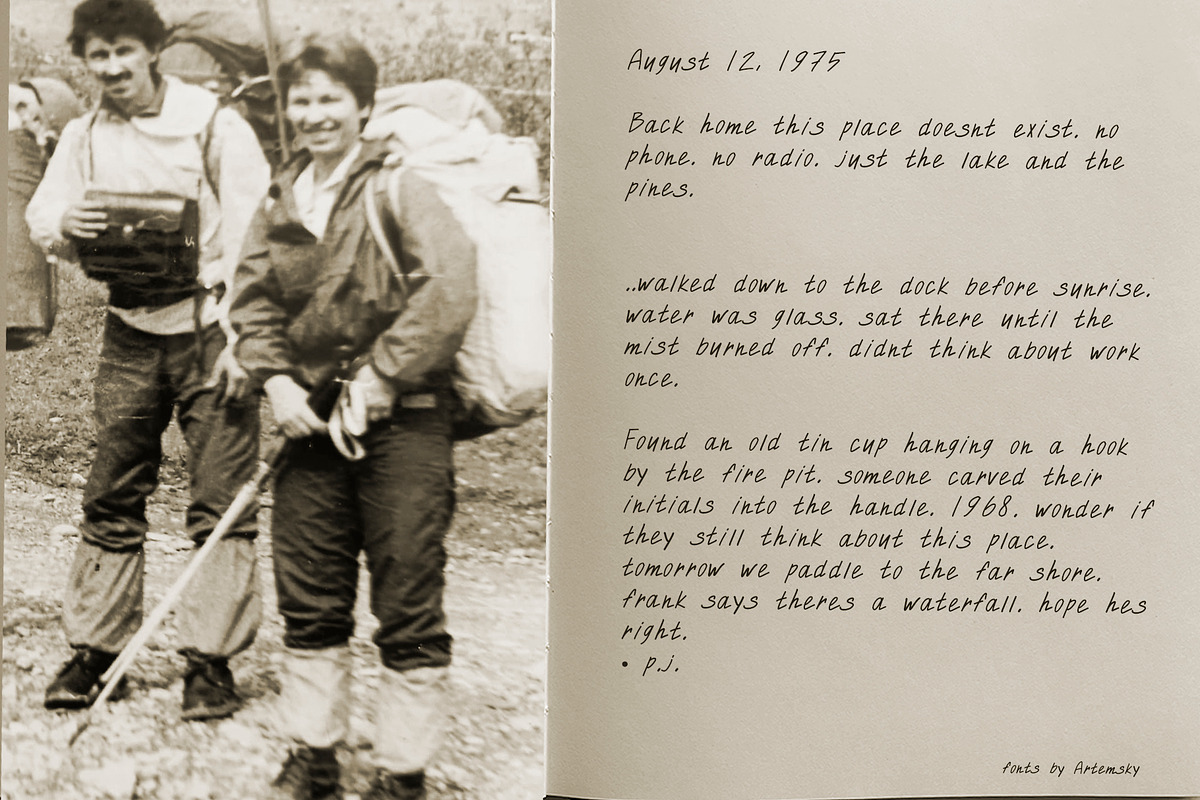 August 12, 1975
Back home this place doesnt exist. no
phone. no radio. just the lake and the
pines.
..walked down to the dock before sunrise.
water was glass. sat there until the
mist burned off. didnt think about work
once.
Found an old tin cup hanging on a hook
by the fire pit. someone carved their
initials into the handle. 1968. wonder if
they still think about this place.
tomorrow we paddle to the far shore.
frank says theres a waterfall. hope hes
right.
• p.j.
fonts by Artemsky